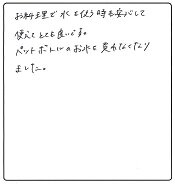 お料理で水を使う時も安心して
使えてとても良いです。
ペットボトルのお水を買わなくなり
ました。